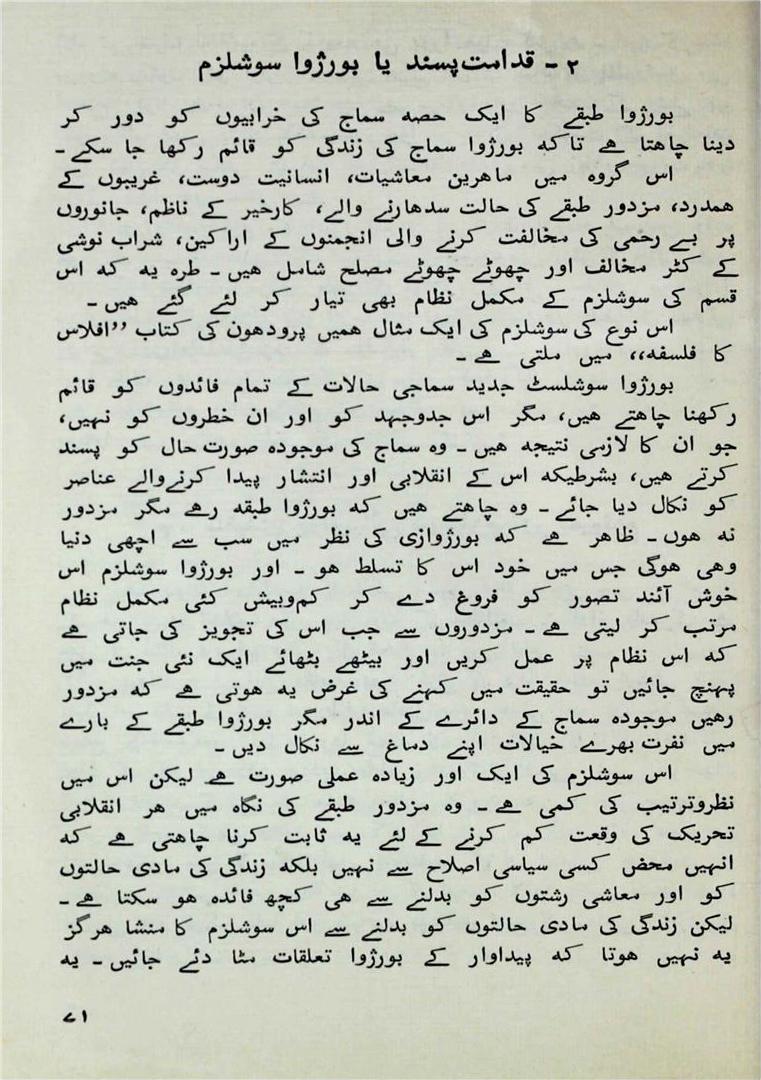 ۲ - قدامت پسند یا بورژوا سوشلزم
بورژوا طبقے کا ایک حصہ سماج کی خرابیوں کو دور کر
دینا چاھتا ہے تاکہ بورژوا سماج کی زندگی کو قائم رکھا جا سکے ۔
اس گروہ میں ماھرین معاشیات، انسانیت دوست، غریبوں کے
ھمدرد، مزدور طبقے کی حالت سدھارنے والے، کارخیر کے ناظم، جانوروں
پر بے رحمی کی مخالفت کرنے والی انجمنوں کے اراکین، شراب نوشی
کے کٹر مخالف اور چھوٹے چھوٹے مصلح شامل ھیں ۔ طرہ یہ کہ اس
قسم کی سوشلزم کے مکمل نظام بھی تیار کر لئے گئے ھیں ۔
اس نوع کی سوشلزم کی ایک مثال ھمیں پرودھون کی کتاب ’’افلاس
کا فلسفہ،، میں ملتی ہے ۔
بورژوا سوشلسٹ جدید سماجی حالات کے تمام فائدوں کو قائم
رکھنا چاھتے ھیں، مگر اس جدوجہد کو اور ان خطروں کو نہیں،
جو ان کا لازمی نتیجہ ھیں ۔ وہ سماج کی موجودہ صورت حال کو پسند
کرتے ھیں، بشرطیکہ اس کے انقلابی اور انتشار پیدا کرنےوالے عناصر
کو نکال دیا جائے ۔ وہ چاھتے ھیں کہ بورژوا طبقہ رہے مگر مزدور
نہ ھوں ۔ ظاھر ہے کہ بورژوازی کی نظر میں سب سے اچھی دنیا
وھی ھوگی جس میں خود اس کا تسلط ھو ۔ اور بورژوا سوشلزم اس
خوش آئند تصور کو فروغ دے کر کم‌وبیش کئی مکمل نظام
مرتب کر لیتی ہے ۔ مزدوروں سے جب اس کی تجویز کی جاتی ہے
کہ اس نظام پر عمل کریں اور بیٹھے بٹھائے ایک نئی جنت میں
پہنچ جائیں تو حقیقت میں کہنے کی غرض یہ ھوتی ہے کہ مزدور
رھیں موجودہ سماج کے دائرے کے اندر مگر بورژوا طبقے کے بارے
میں نفرت بھرے خیالات اپنے دماغ سے نکال دیں ۔
اس سوشلزم کی ایک اور زیادہ عملی صورت ہے لیکن اس میں
نظم‌وترتیب کی کمی ہے ۔ وہ مزدور طبقے کی نگاہ میں ھر انقلابی
تحریک کی وقعت کم کرنے کےلئے یہ ثابت کرنا چاھتی ہے کہ
انہیں محض کسی سیاسی اصلاح سے نہیں بلکہ زندگی کی مادی حالتوں
کو اور معاشی رشتوں کو بدلنے سے ھی کچھ فائدہ ھو سکتا ہے ۔
لیکن زندگی کی مادی حالتوں کو بدلنے سے اس سوشلزم کا منشا ھرگز
یہ نہیں ھوتا کہ پیداوار کے بورژوا تعلقات مٹا دئے جائیں ۔ یہ
۷۱